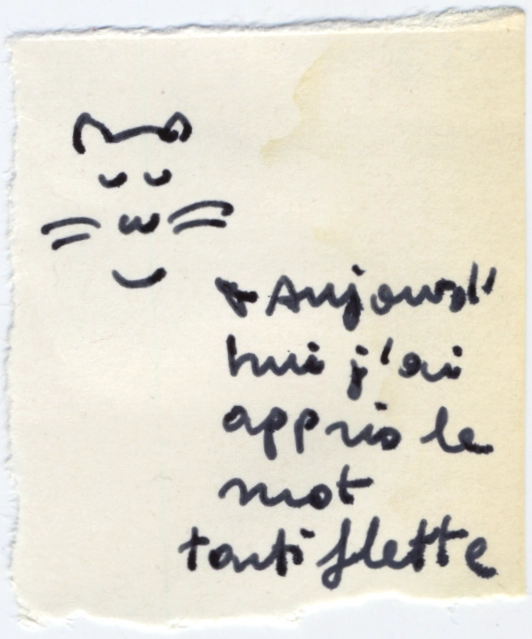 Aujourd'
hui j'ai
appris le
mot
tartiflette